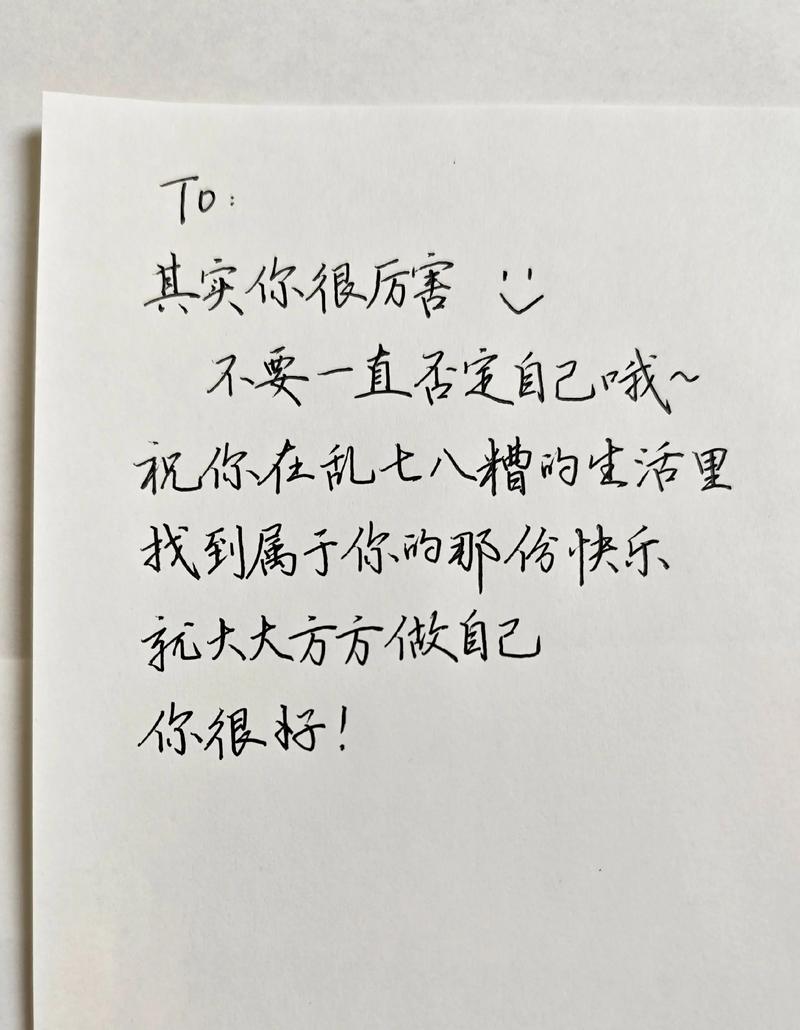 To:
其实你很厉害
不要一直否定自己哦~
祝你在乱七八糟的生活里
找到属于你的那份快乐
就大大方方做自己
你很好!